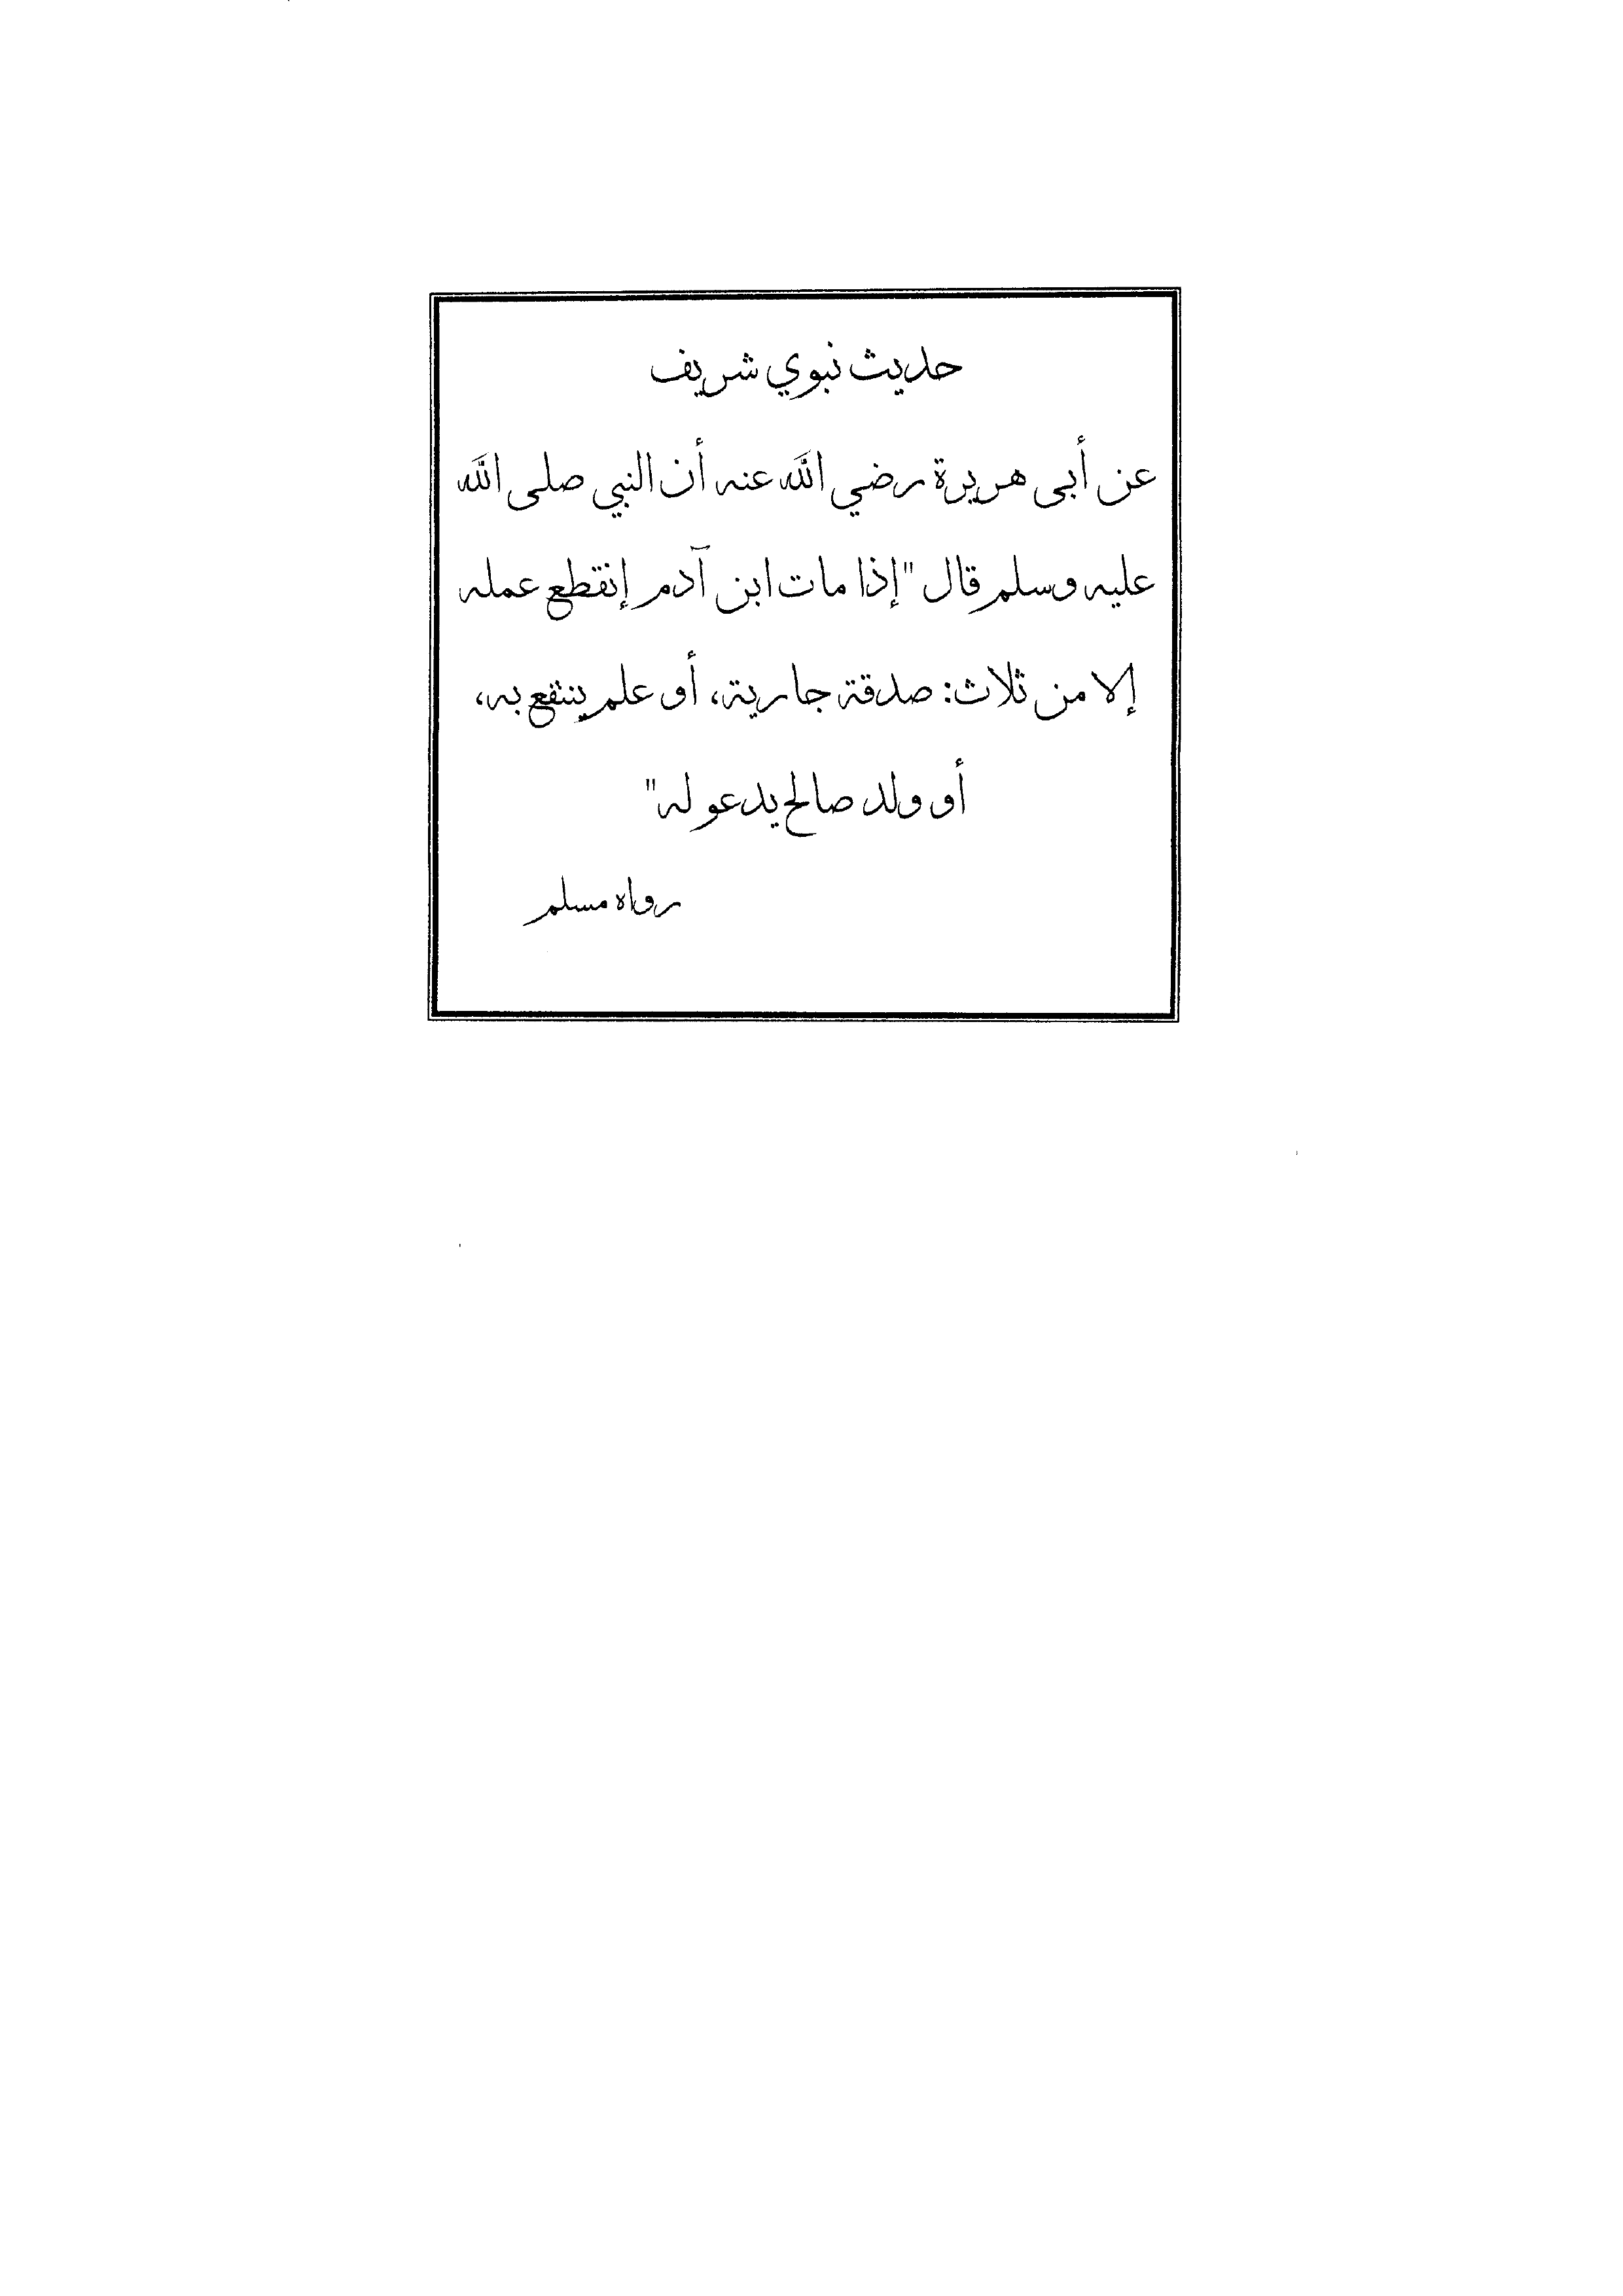 حديث نبوي شريف
عن أبى هريرة رضي الله عنه أن النبي صلى الله
عليه وسلم قال "إذا مات ابن آدم إنقطع عمله
إلا من ثلاث: صدقة جارية، أو علم ينتفع به،
أو ولد صالح يدعو له"
رواه مسلم